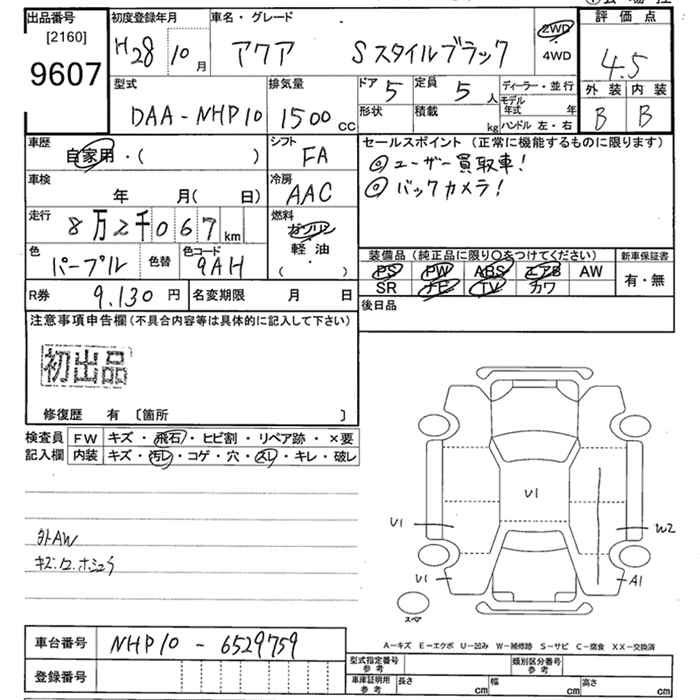 出品番号
[2160]
9607
初度登録年月
H28 10 月
車名・グレード
アクア Sスタイルブラック
2WD
・
4WD
評価点
4.5
外装 内装
B B
型式
DAA-NHP10
排気量
1500 cc
ドア 5
定員 5 人
形状
積載 kg
ディーラー・並行
モデル年式 年
ハンドル 左・右
車歴
自家用・( )
シフト
FA
車検
年 月( 日)
冷房
AAC
走行
8万2千067 km
燃料
ガソリン
軽油
・
( )
色
パープル
色替
色コード
9AH
R券 9,130 円
名変期限 月 日
セールスポイント (正常に機能するものに限ります)
◎ユーザー買取車!
◎バックカメラ!
装備品(純正品に限り○をつけてください)
新車保証書
PS PW ABS エアB AW
SR ナビ TV カワ
有・無
後日品
注意事項申告欄(不具合内容等は具体的に記入して下さい)
初出品
修復歴 有 〔箇所 〕
検査員
記入欄
FW キズ・飛石・ヒビ割・リペア跡・×要
内装 キズ・汚レ・コゲ・穴・スレ・キレ・破レ
外AW
U1
U1
W2
U1
A1
スペア
A-キズ E-エクボ U-凹み W-補修跡 S-サビ C-腐食 XX-交換済
車台番号 NHP10-6529759
登録番号
型式指定番号
参考
類別区分番号
参考
車庫証明用
参考
長さ cm
幅 cm
高さ cm